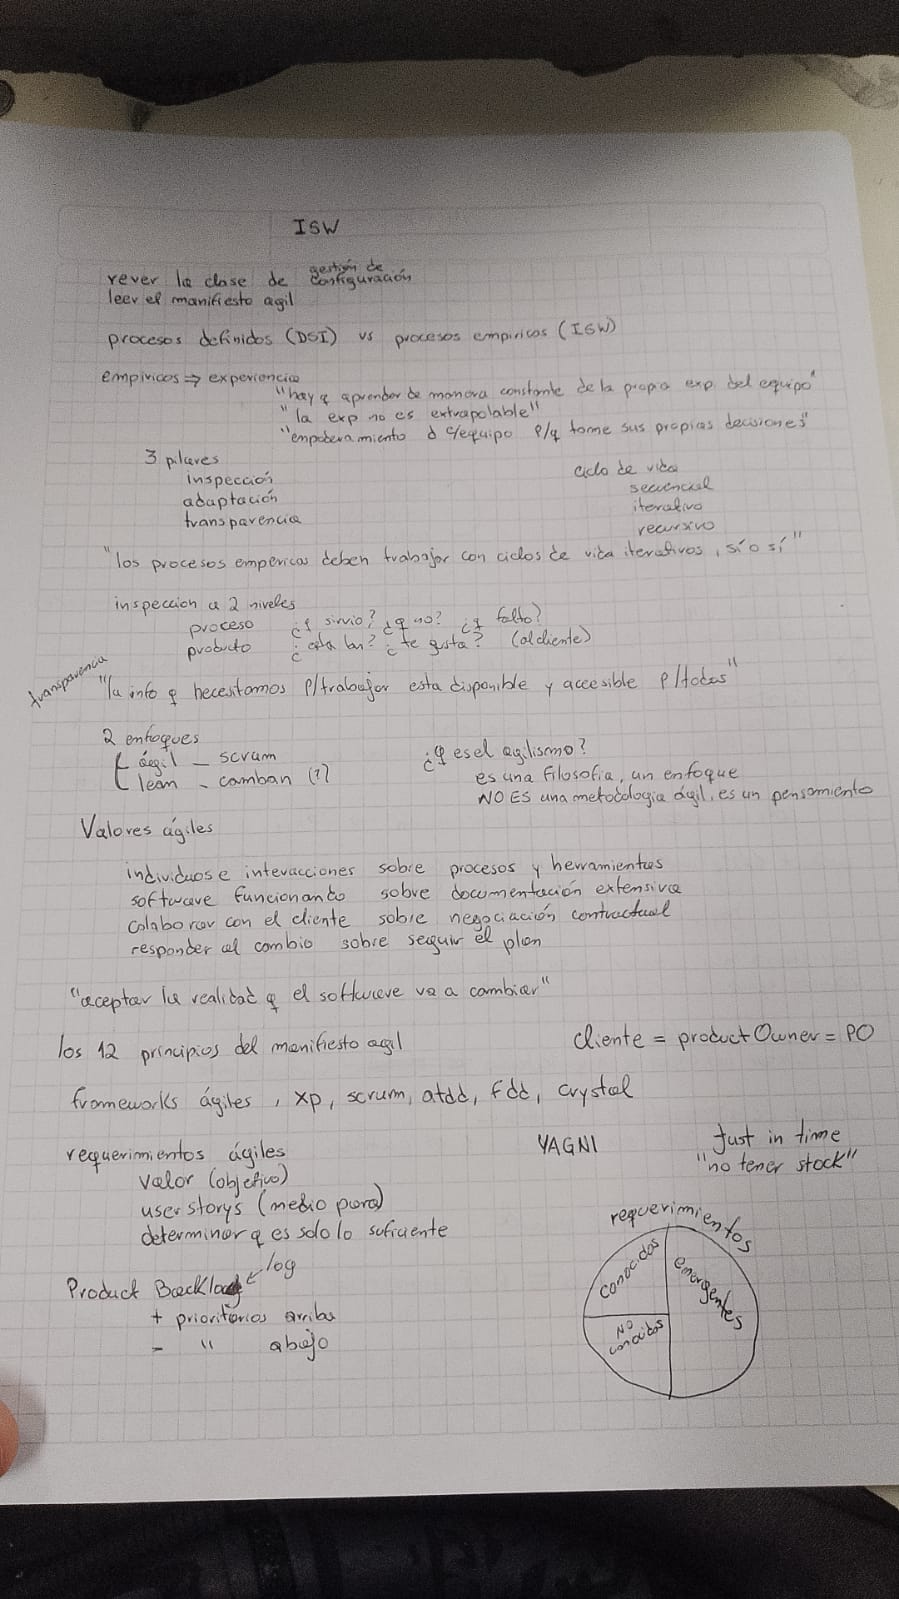 ISW
rever la clase de gestión de configuración
leer el manifiesto agil
procesos definidos (DSI) vs procesos empiricos (ISW)
empiricos ⇒ experiencia
"hay q aprender de manera constante de la propia exp. del equipo"
"la exp no es extrapolable"
"empoderamiento d c/equipo p/q tome sus propias decisiones"
3 pilares
inspección
adaptación
transparencia
ciclo de vida
secuencial
iterativo
recursivo
"los procesos empericos deben trabajar con ciclos de vida iterativos, sí o sí"
inspeccion a 2 niveles
proceso ¿q sirvio? ¿q no? ¿q falto?
producto ¿esta bn? ¿te gusta? (al cliente)
transparencia
"la info q necesitamos p/trabajar esta disponible y accesible p/todos"
2 enfoques
ágil - scrum
lean - camban (?)
¿q es el agilismo?
es una filosofia, un enfoque
NO ES una metodologia ágil, es un pensamiento
Valores ágiles
individuos e interacciones sobre procesos y herramientas
software funcionando sobre documentación extensiva
colaborar con el cliente sobre negociación contractual
responder al cambio sobre seguir el plan
"aceptar la realidad q el software va a cambiar"
los 12 principios del manifiesto agil
cliente = product Owner = PO
frameworks ágiles, xp, scrum, atdd, fdd, crystal
requerimientos ágiles
valor (objetivo)
user storys (medio para)
determinar q es solo lo suficiente
YAGNI
Just in time
"no tener stock"
Product Backlog
log
+ prioritarios arriba
- " abajo
requerimientos
conocidos
emergentes
NO conocidos